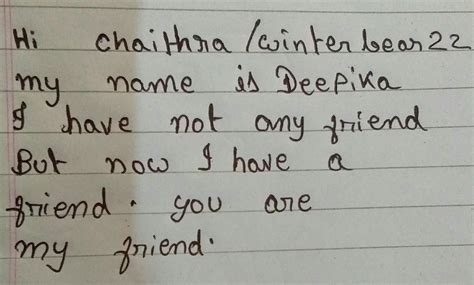 Hi chaithra /winterbear22
my name is Deepika
I have not any friend
But now I have a
friend. you are
my friend.